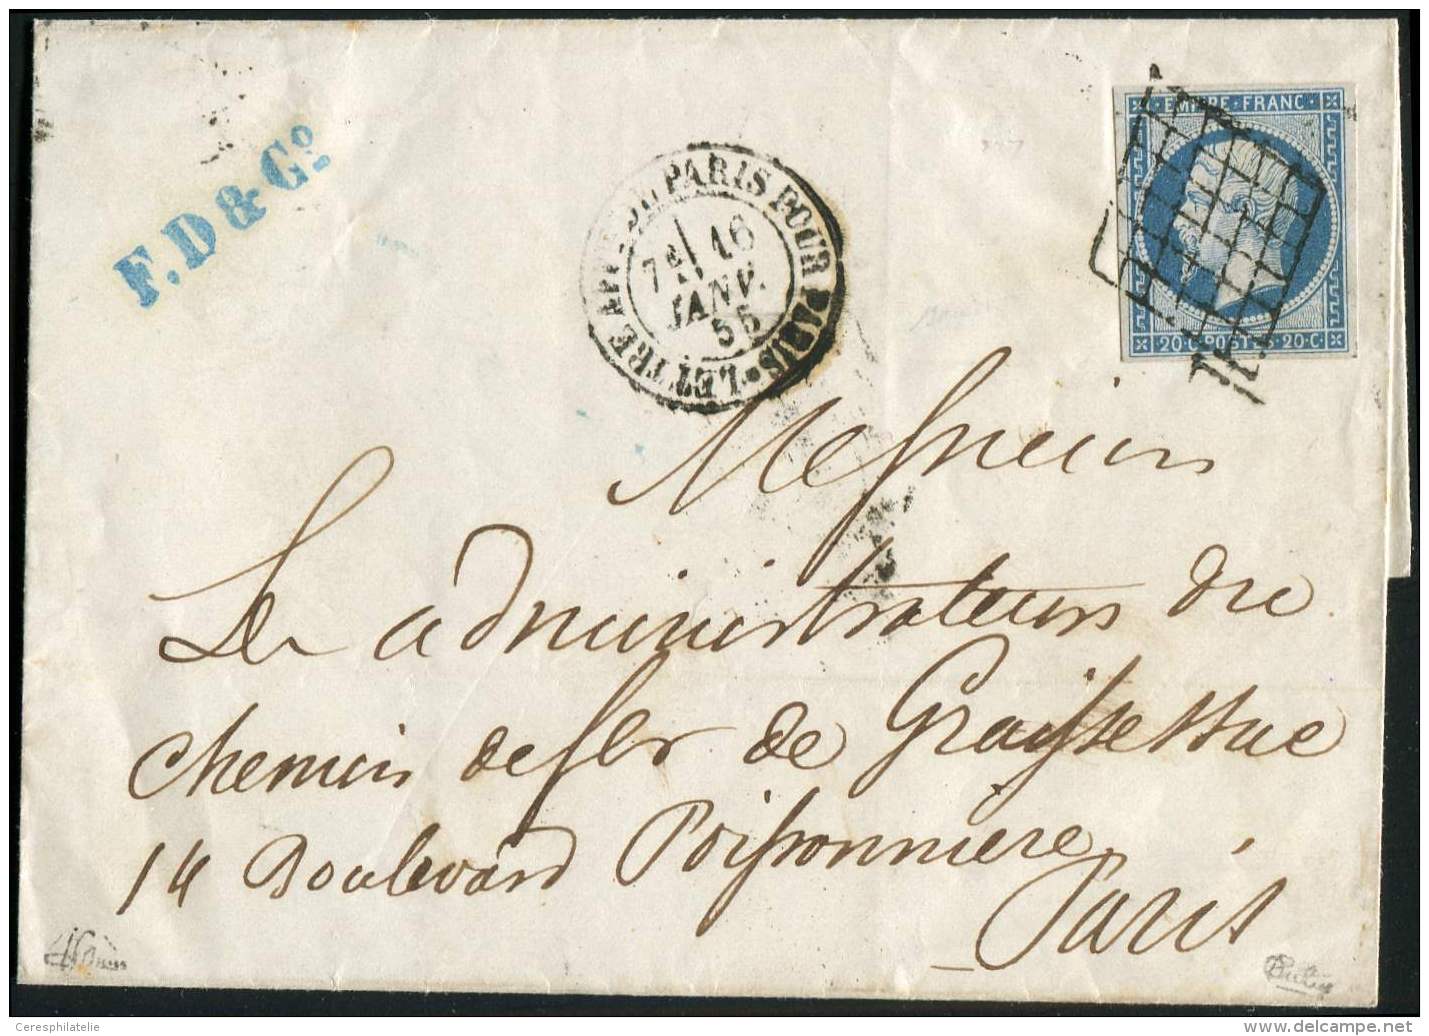 F.D & Cº
LETTRE AFF. DE PARIS POUR PARIS
7E 16
JANV.
55
EMPIRE FRANC
20·C·POSTES·20·C·
Messieurs
Les administrateurs du
chemin de fer de Graissessac
14 Boulevard Poissonniere
Paris
Ceresphilatelie
www.delcampe.net